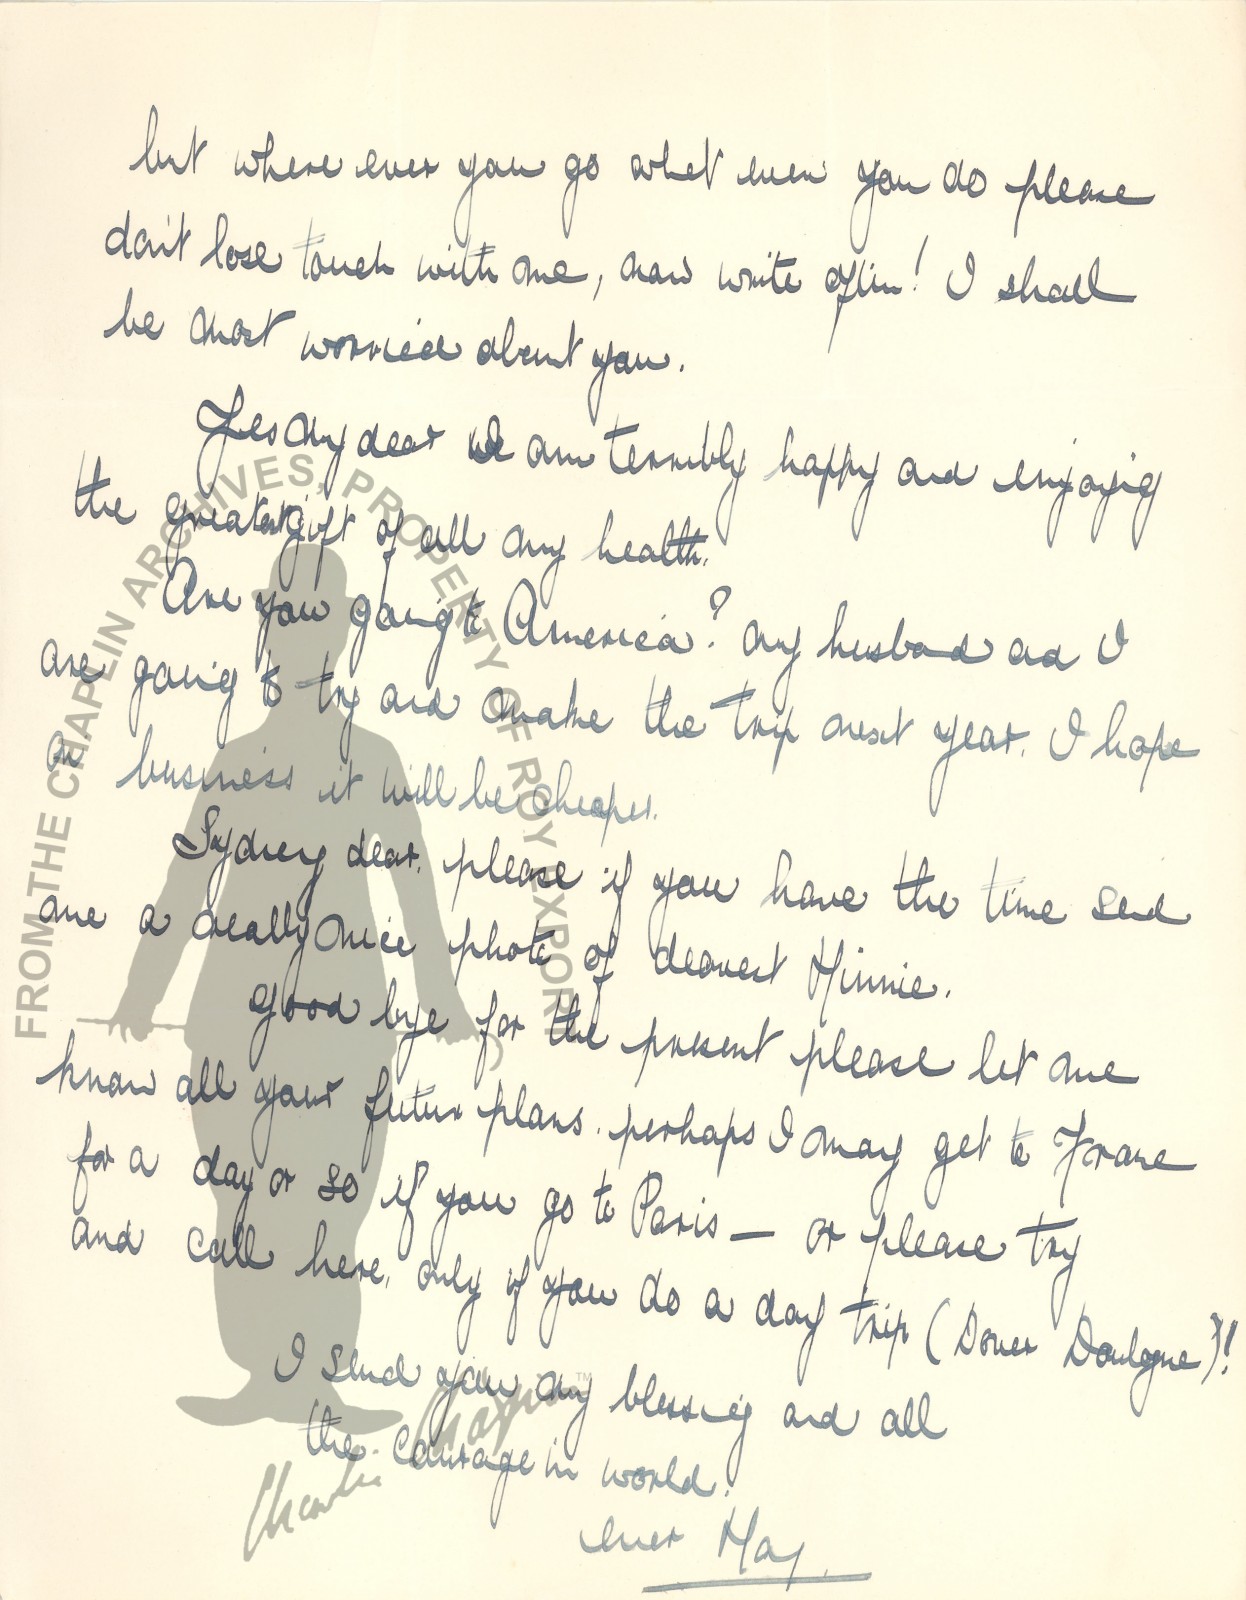 but where ever you go what ever you do please
don't lose touch with me, now write often! I shall
be most worried about you.
Yes my dear I am terribly happy and enjoying
the greatest gift of all my health.
Are you going to America? my husband and I
are going to try and make the trip next year. I hope
on business it will be cheaper.
Sydney dear, please if you have the time send
me a really nice photo of dearest Minnie.
good bye for the present please let me
know all your future plans. perhaps I may get to France
for a day or so if you go to Paris — or please try
and call here, only if you do a day trip (Dover Boulogne)!
I send you my blessing and all
the courage in world.
ever May
FROM THE CHAPLIN ARCHIVES, PROPERTY OF ROY EXPORT
Charlie Chaplin ™